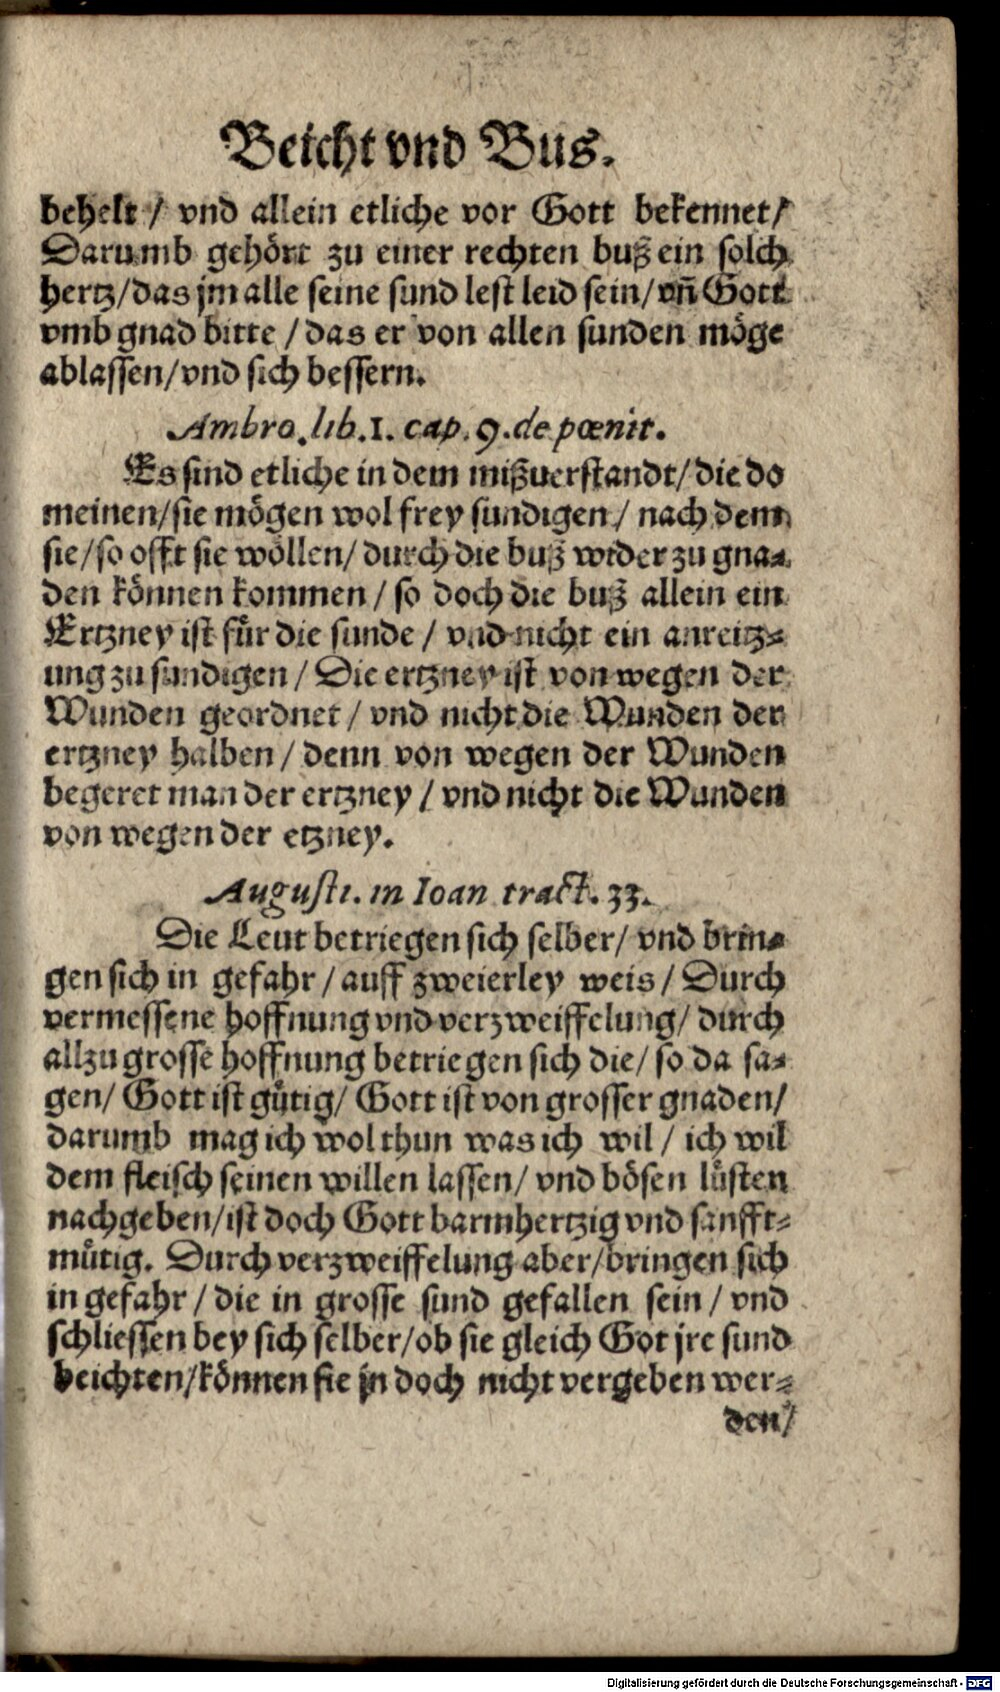 Beicht vnd Bus.
behelt / vnd allein etliche vor Gott bekennet /
Darumb gehört zu einer rechten buß ein solch
hertz / das jm alle seine sund lest leid sein / vñ Gott
vmb gnad bitte / das er von allen sunden möge
ablassen / vnd sich bessern.
Ambro. lib. 1. cap. 9. de pœnit.
Es sind etliche in dem mißuerstandt / die do
meinen / sie mögen wol frey sundigen / nach dem
sie / so offt sie wöllen / durch die buß wider zu gna-
den können kommen / so doch die buß allein ein
Ertzney ist für die sunde / vnd nicht ein anreitz-
ung zu sundigen / Die ertzney ist von wegen der
Wunden geordnet / vnd nicht die Wunden der
ertzney halben / denn von wegen der Wunden
begeret man der ertzney / vnd nicht die Wunden
von wegen der etzney.
Augusti. in Ioan tract. 33.
Die Leut betriegen sich selber / vnd brin-
gen sich in gefahr / auff zweierley weis / Durch
vermessene hoffnung vnd verzweiffelung / durch
allzu grosse hoffnung betriegen sich die / so da sa-
gen / Gott ist gütig / Gott ist von grosser gnaden /
darumb mag ich wol thun was ich wil / ich wil
dem fleisch seinen willen lassen / vnd bösen lüsten
nachgeben / ist doch Gott barmhertzig vnd sanfft-
mütig. Durch verzweiffelung aber / bringen sich
in gefahr / die in grosse sund gefallen sein / vnd
schliessen bey sich selber / ob sie gleich Got jre sund
beichten / können sie jn doch nicht vergeben wer-
den /
Digitalisierung gefördert durch die Deutsche Forschungsgemeinschaft - DFG